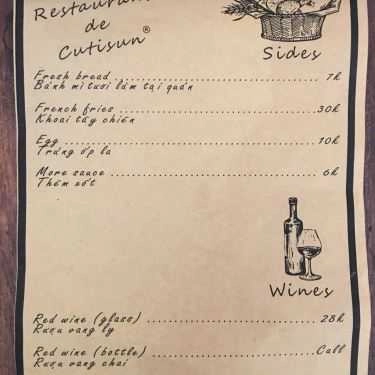 Restaurant
de
Cutisun®
Sides
Fresh bread 7k
Bánh mì tươi làm tại quán
French fries 30k
Khoai tây chiên
Egg 10k
Trứng ốp la
More sauce 6k
Thêm sốt
Wines
Red wine (glass) 28k
Rượu vang ly
Red wine (bottle) Call
Rượu vang chai